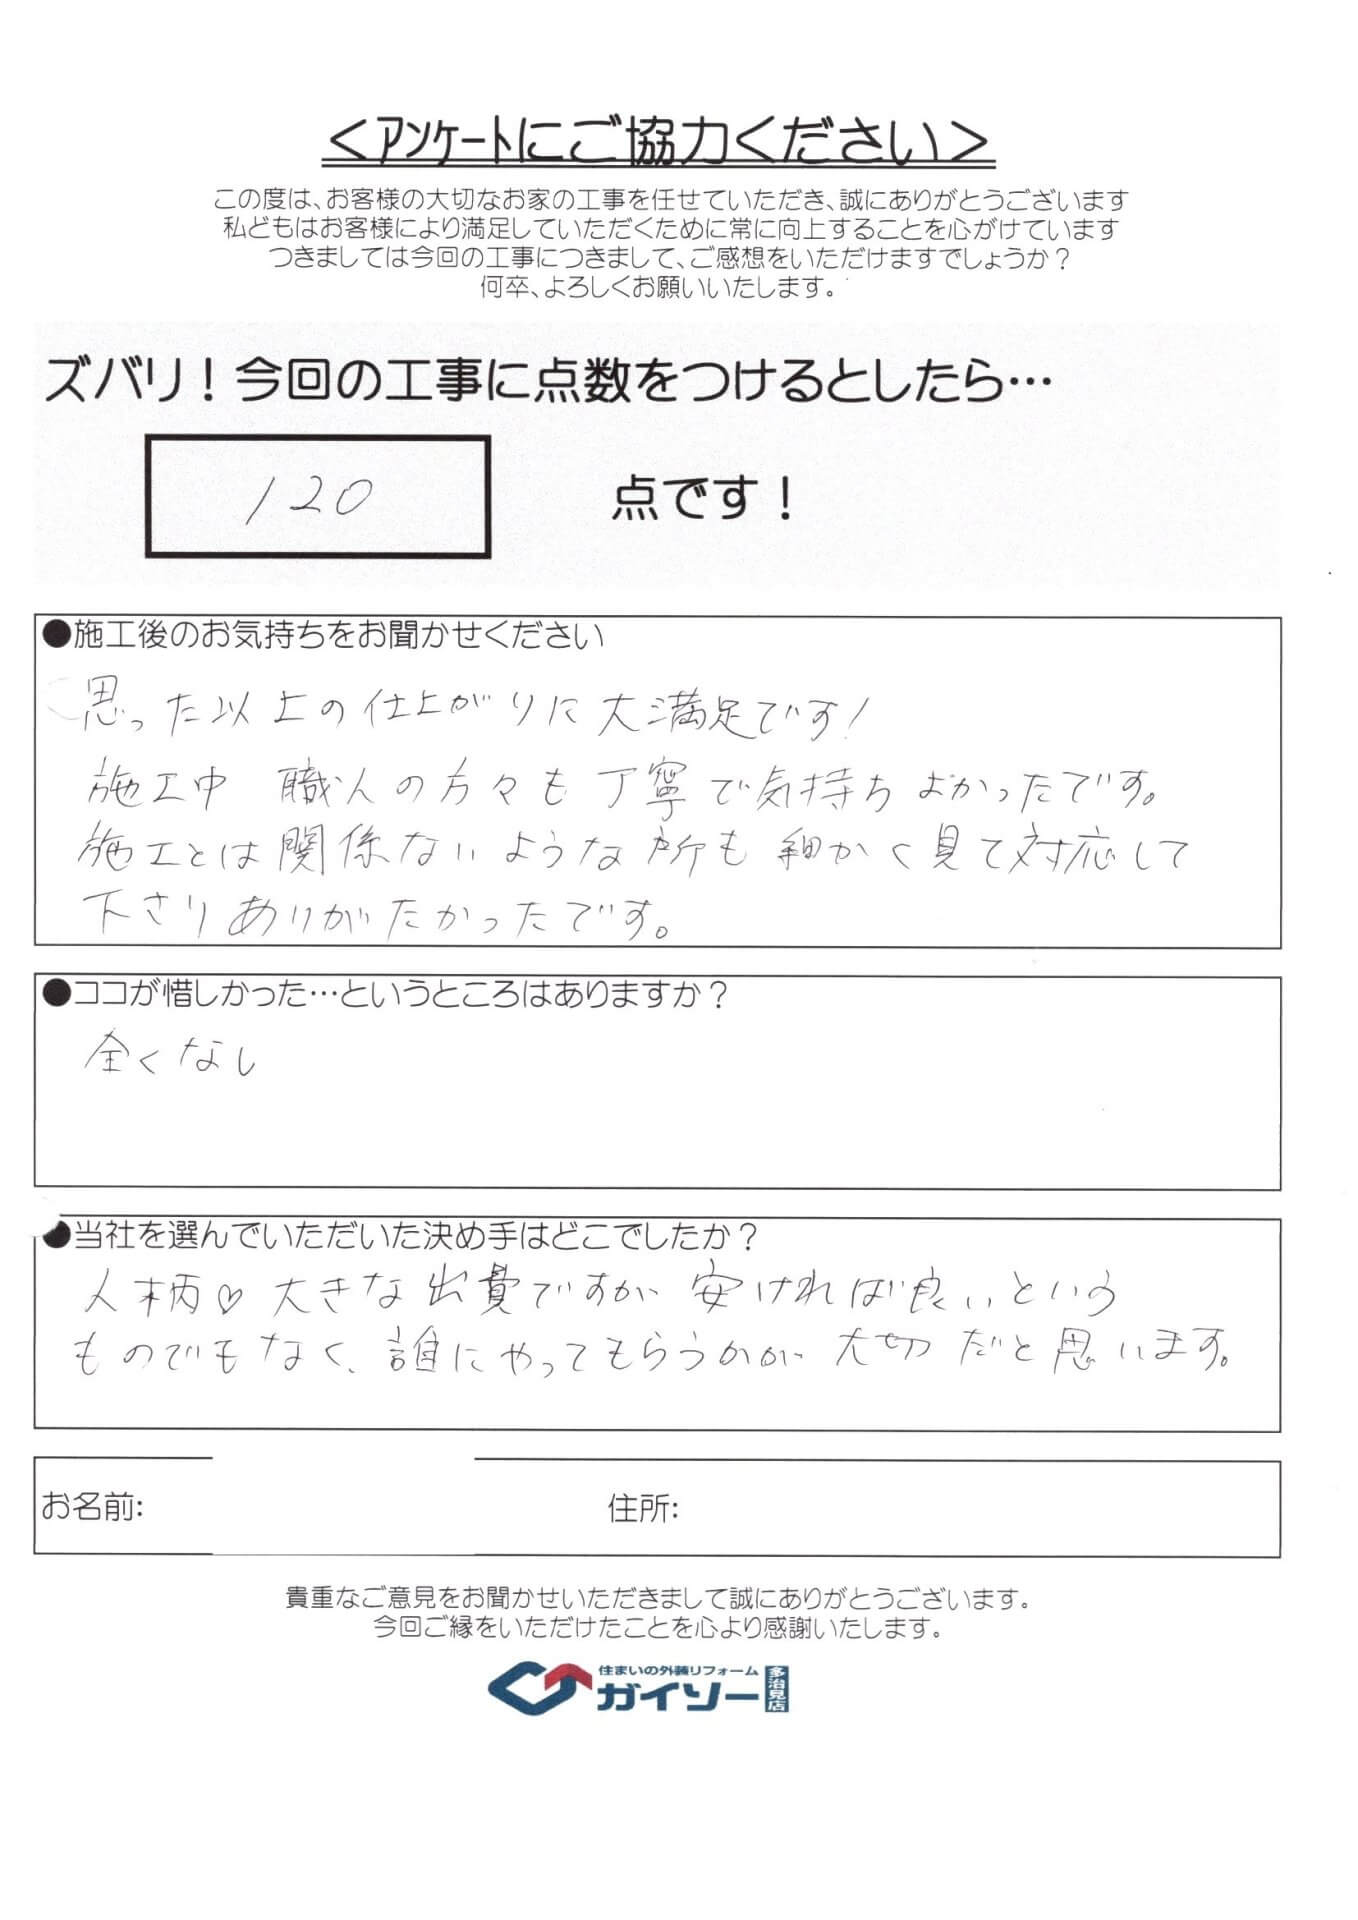 ＜アンケートにご協力ください＞
この度は、お客様の大切なお家の工事を任せていただき、誠にありがとうございます
私どもはお客様により満足していただくために常に向上することを心がけています
つきましては今回の工事につきまして、ご感想をいただけますでしょうか？
何卒、よろしくお願いいたします。
ズバリ！今回の工事に点数をつけるとしたら…
120 点です！
●施工後のお気持ちをお聞かせください
思った以上の仕上がりに大満足です!
施工中 職人の方々も丁寧で気持ちよかったです。
施工とは関係ないような所も細かく見て対応して
下さりありがたかったです。
●ココが惜しかった…というところはありますか？
全くなし
●当社を選んでいただいた決め手はどこでしたか？
人柄♡ 大きな出費ですが、安ければ良いという
ものでもなく、誰にやってもらうかが大切だと思います。
お名前: 住所:
貴重なご意見をお聞かせいただきまして誠にありがとうございます。
今回ご縁をいただけたことを心より感謝いたします。
住まいの外装リフォーム
ガイソー 多治見店